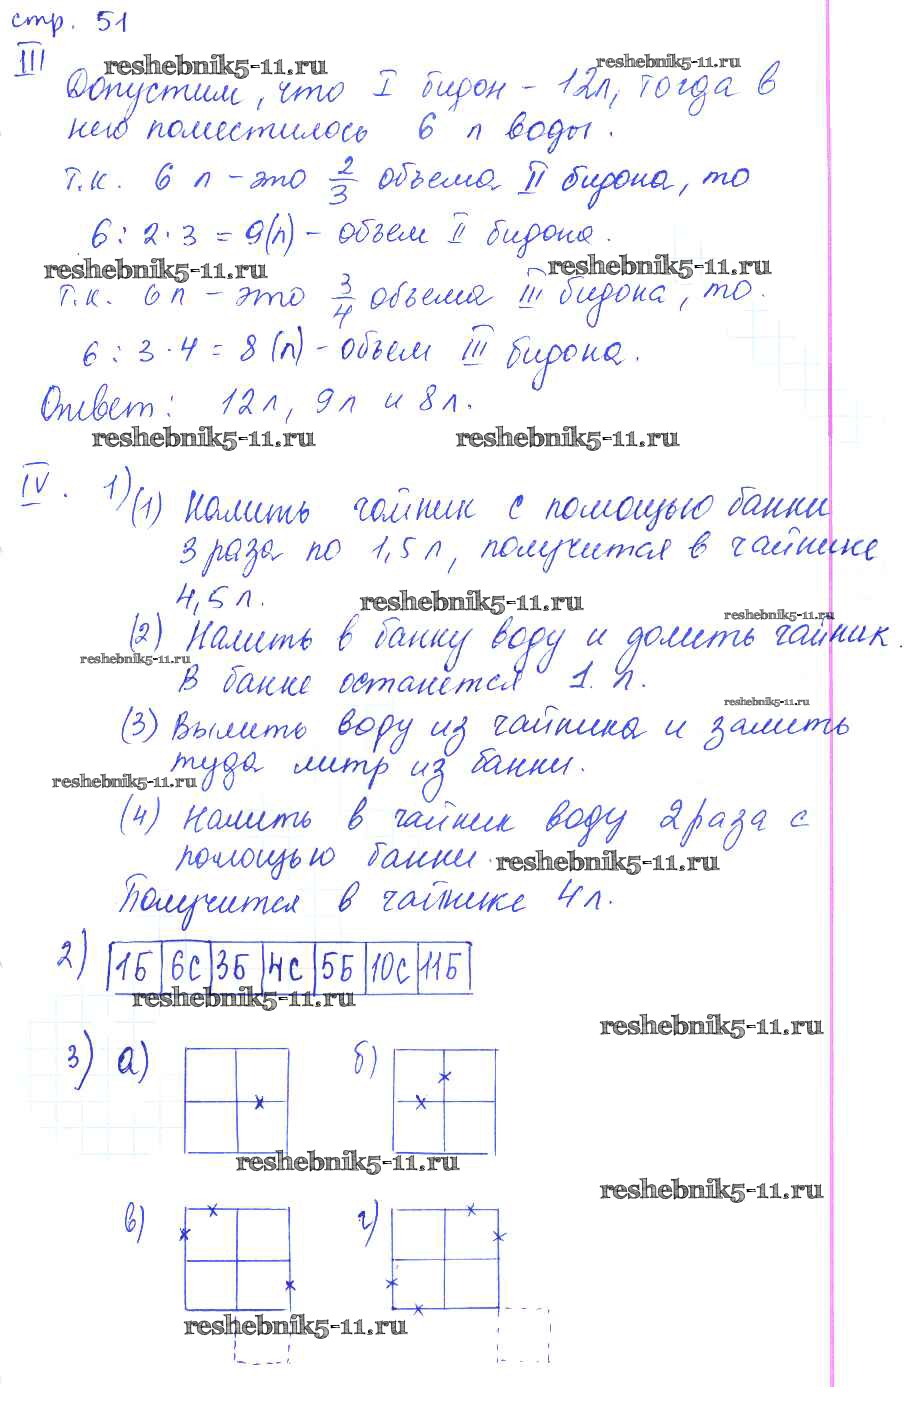 стр. 51
III
reshebnik5-11.ru reshebnik5-11.ru
Допустим, что I бидон - 12л, тогда в
него поместилось 6 л воды.
т.к. 6 л - это 2/3 объема II бидона, то
6 : 2 · 3 = 9(л) - объем II бидона.
reshebnik5-11.ru reshebnik5-11.ru
т.к. 6л - это 3/4 объема III бидона, то.
6 : 3 · 4 = 8 (л) - объем III бидона.
Ответ: 12л, 9л и 8л.
reshebnik5-11.ru reshebnik5-11.ru
IV. 1) (1) Налить чайник с помощью банки
3 раза по 1,5л, получится в чайнике
4,5л. reshebnik5-11.ru
reshebnik5-11.ru
(2) Налить в банку воду и долить чайник.
reshebnik5-11.ru
В банке останется 1 л.
reshebnik5-11.ru
(3) Вылить воду из чайника и залить
туда литр из банки.
reshebnik5-11.ru
(4) Налить в чайник воду 2 раза с
помощью банки. reshebnik5-11.ru
Получится в чайнике 4л.
2) 1Б 6С 3Б 4С 5Б 10С 11Б
reshebnik5-11.ru
reshebnik5-11.ru
3) а) б)
reshebnik5-11.ru
reshebnik5-11.ru
в) г)
reshebnik5-11.ru